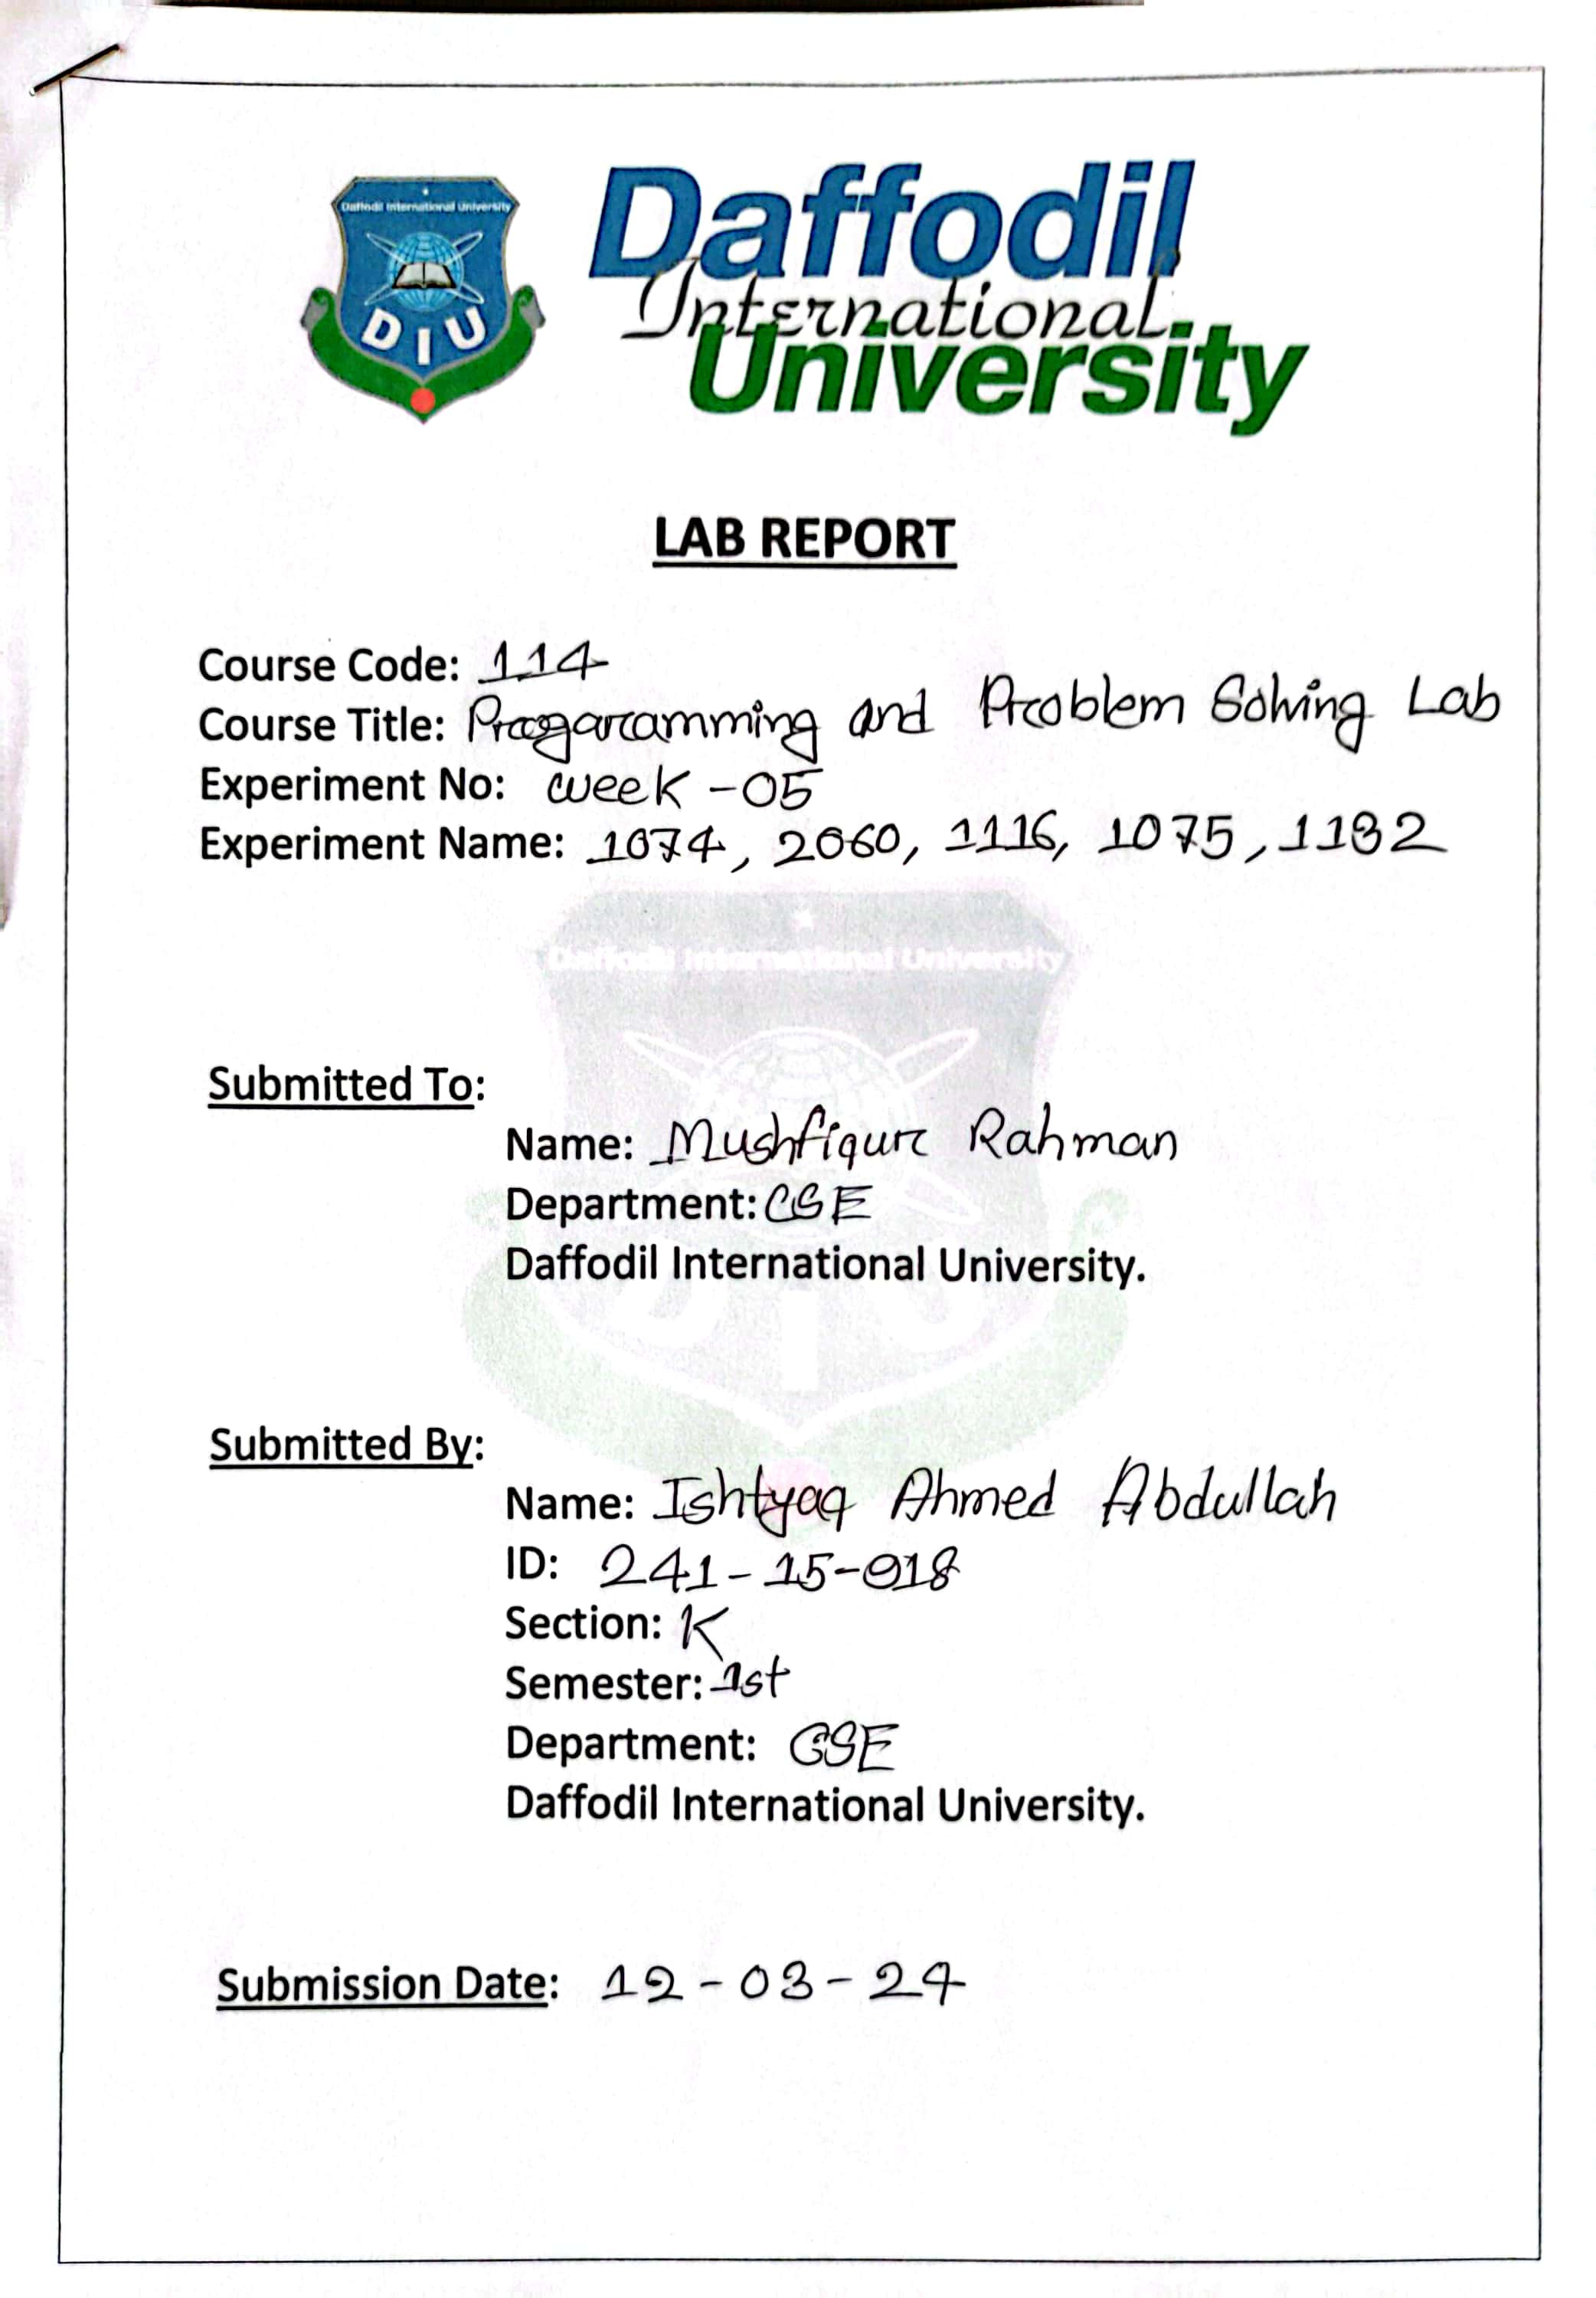 Daffodil International University
DIU
Daffodil
International
University
LAB REPORT
Course Code: 114
Course Title: Progaramming and Problem Solving Lab
Experiment No: week -05
Experiment Name: 1074, 2060, 1116, 1075, 1132
Daffodil International University
Submitted To:
Name: Mushfiqur Rahman
Department: CSE
Daffodil International University.
DIU
Submitted By:
Name: Ishtyaq Ahmed Abdullah
ID: 241-15-018
Section: K
Semester: 1st
Department: CSE
Daffodil International University.
Submission Date: 12-03-24